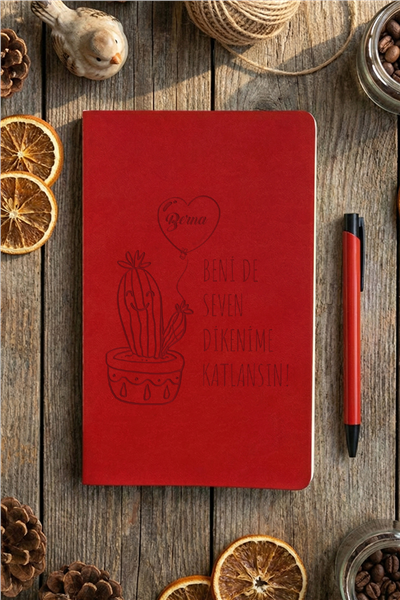 Berna
BENİ DE
SEVEN
DİKENİME
KATLANSIN!